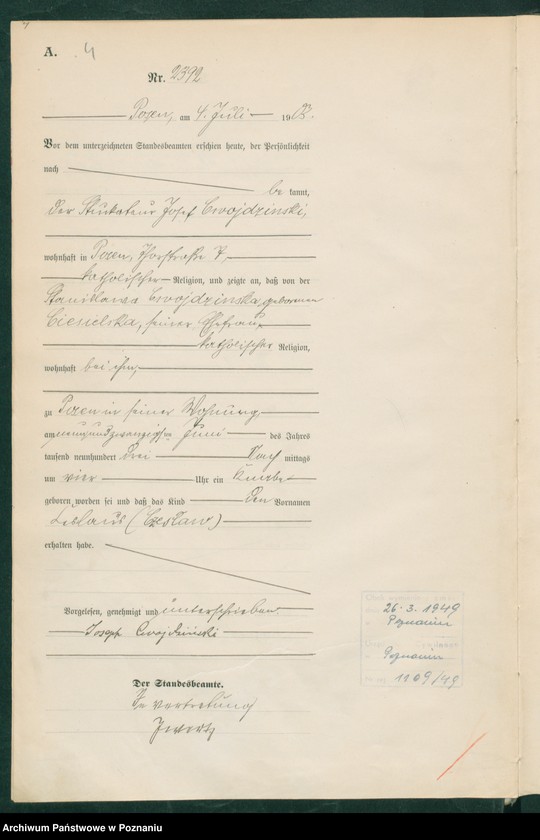 A. 4
Nr. 2392
Posen, am 4. Juli 1903.
Vor dem unterzeichneten Standesbeamten erschien heute, der Persönlichkeit
nach
be kannt,
der Stukateur Josef Cwojdzinski,
wohnhaft in Posen, Thorstraße
katholischer Religion, und zeigte an, daß von der
Stanislawa Cwojdzinska, geborenen
Ciesielska, seiner Ehefrau,
katholischer Religion,
wohnhaft bei ihm,
zu Posen in seiner Wohnung
am neunundzwanzigsten Juni des Jahres
tausend neunhundert drei Nach mittags
um vier Uhr ein Knabe
geboren worden sei und daß das Kind den Vornamen
Ceslaus (Czeslaw)
erhalten habe.
Vorgelesen, genehmigt und unterschrieben
Joseph Cwojdzinski
Der Standesbeamte.
In Vertretung
26.3.1949
Poznaniu
Poznaniu
1109/49
Archiwum Państwowe w Poznaniu